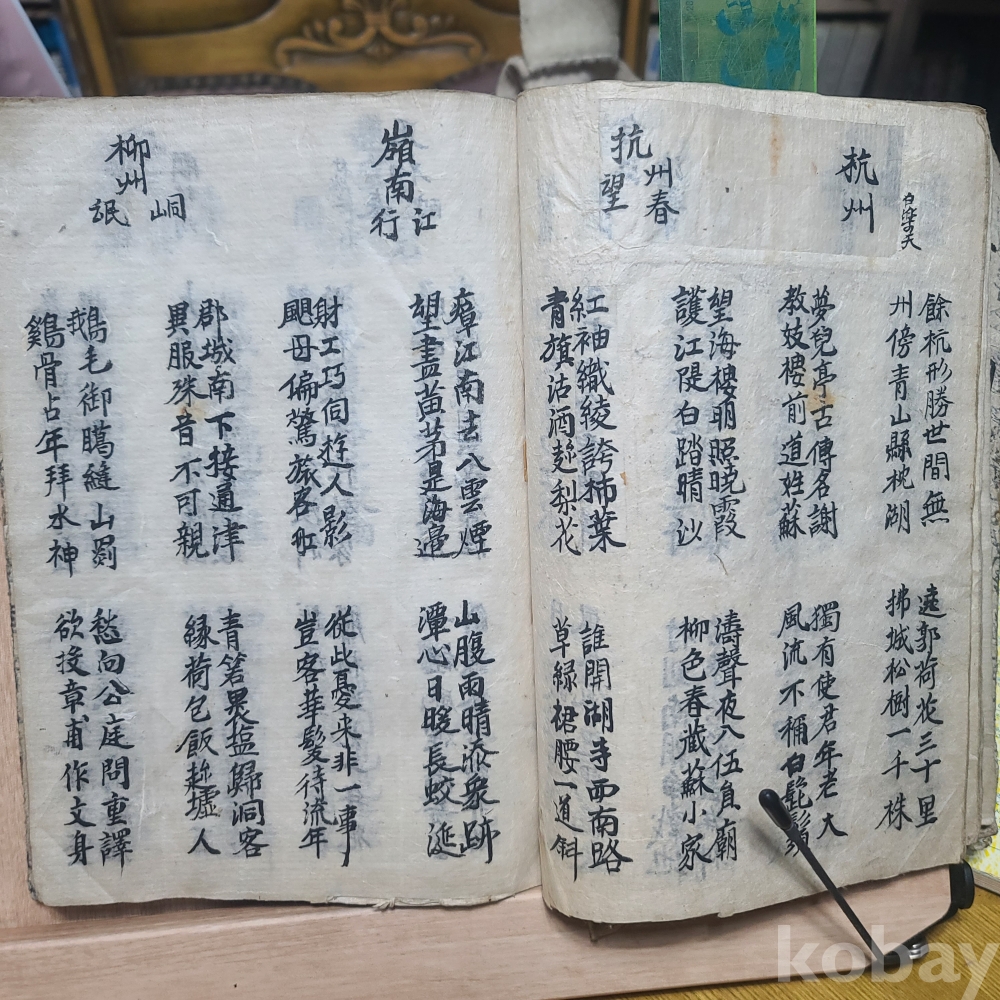 杭州
白樂天
餘杭形勝世間無
州傍青山縣枕湖
遶郭荷花三十里
拂城松樹一千株
夢兒亭古傳名謝
教妓樓前道姓蘇
獨有使君年老大
風流不稱白髭鬚
抗州春望
望海樓明照曉霞
護江隄白踏晴沙
濤聲夜八伍員廟
柳色春藏蘇小家
紅袖織綾誇柿葉
青旗沽酒趂梨花
誰開湖寺西南路
草綠裙腰一道斜
嶺南江行
瘴江南去八雲煙
望盡黃茅是海邊
山腹雨晴添象跡
潭心日暖長蛟涎
射工巧伺遊人影
颶母偏驚旅客舡
從此憂来非一事
豈客華髮待流年
柳州峒氓
郡城南下接通津
異服殊音不可親
青箬裹塩歸洞客
緑荷包飯趂墟人
鵝毛御臈縫山罽
鷄骨占年拜水神
愁向公庭問重譯
欲投章甫作文身
kobay